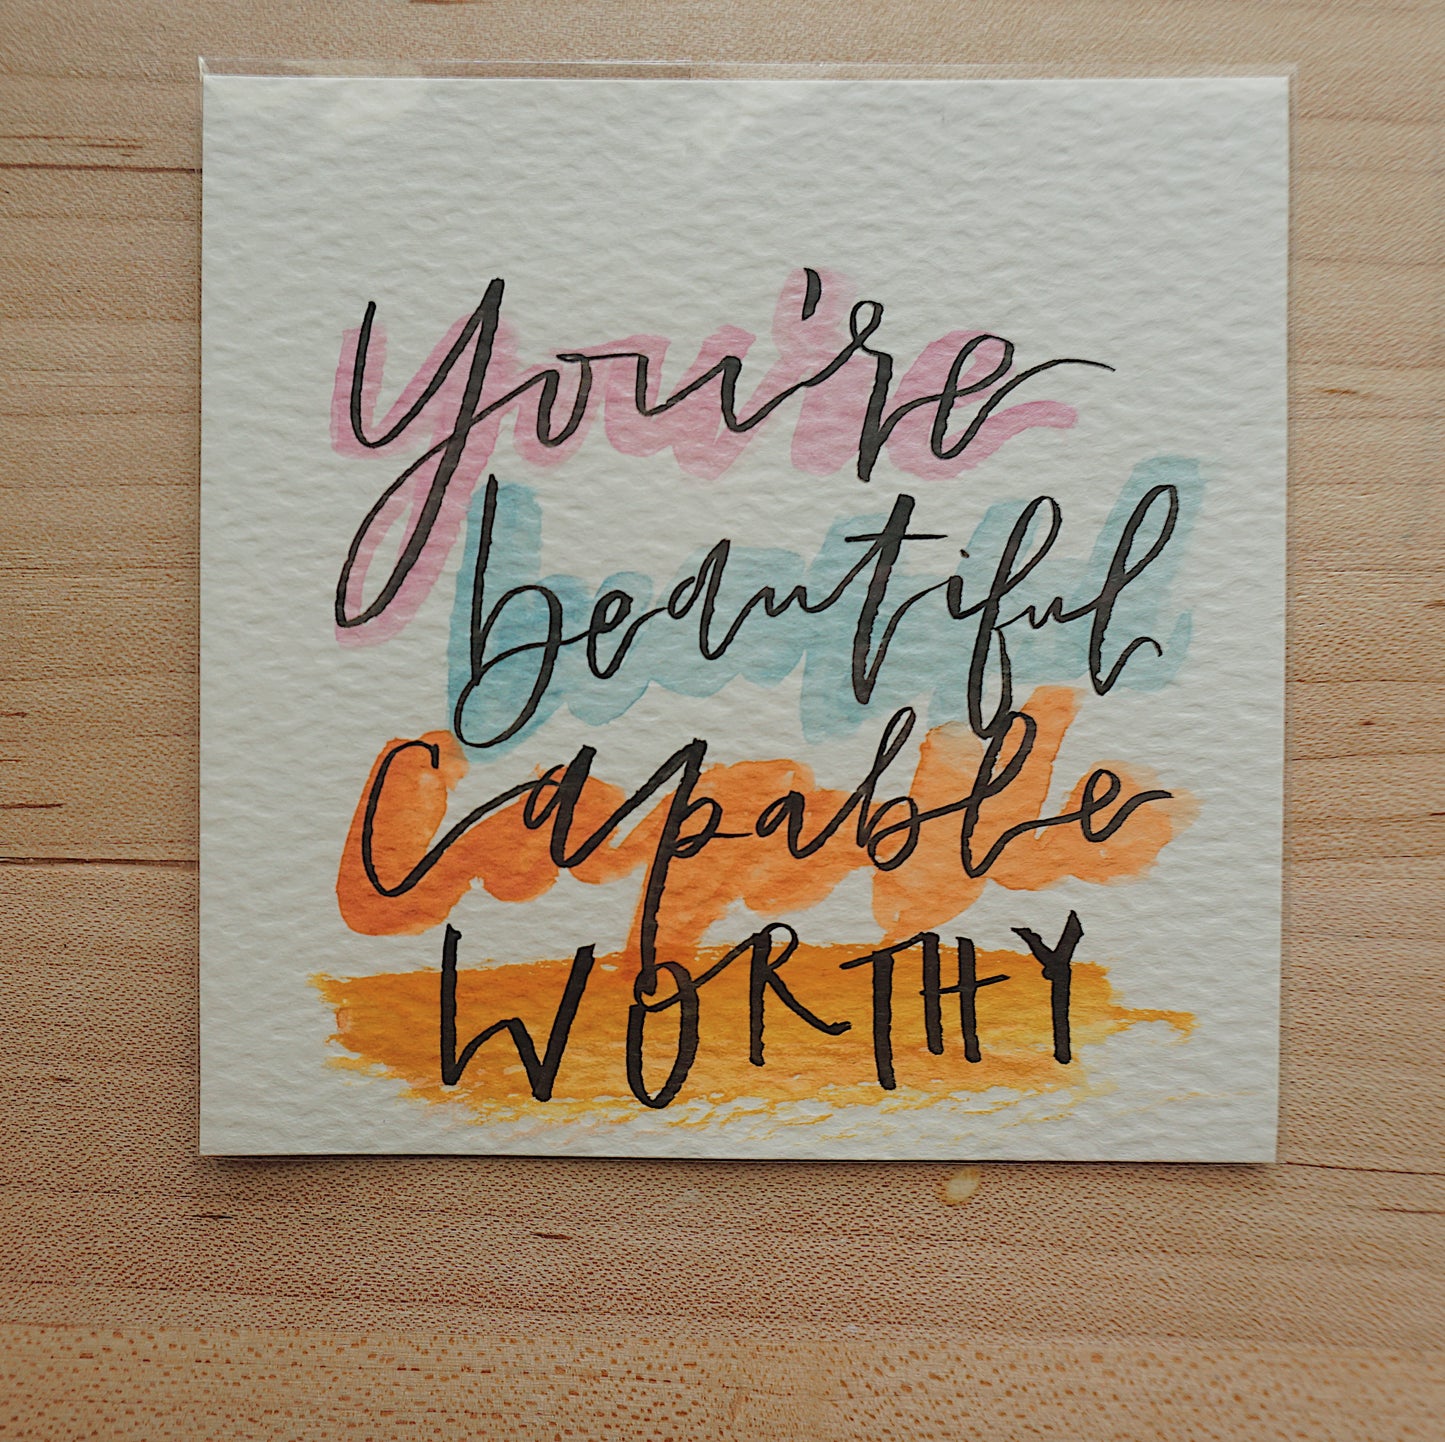 you're
beautiful
capable
WORTHY